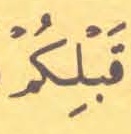 قَبْلِكُمْ